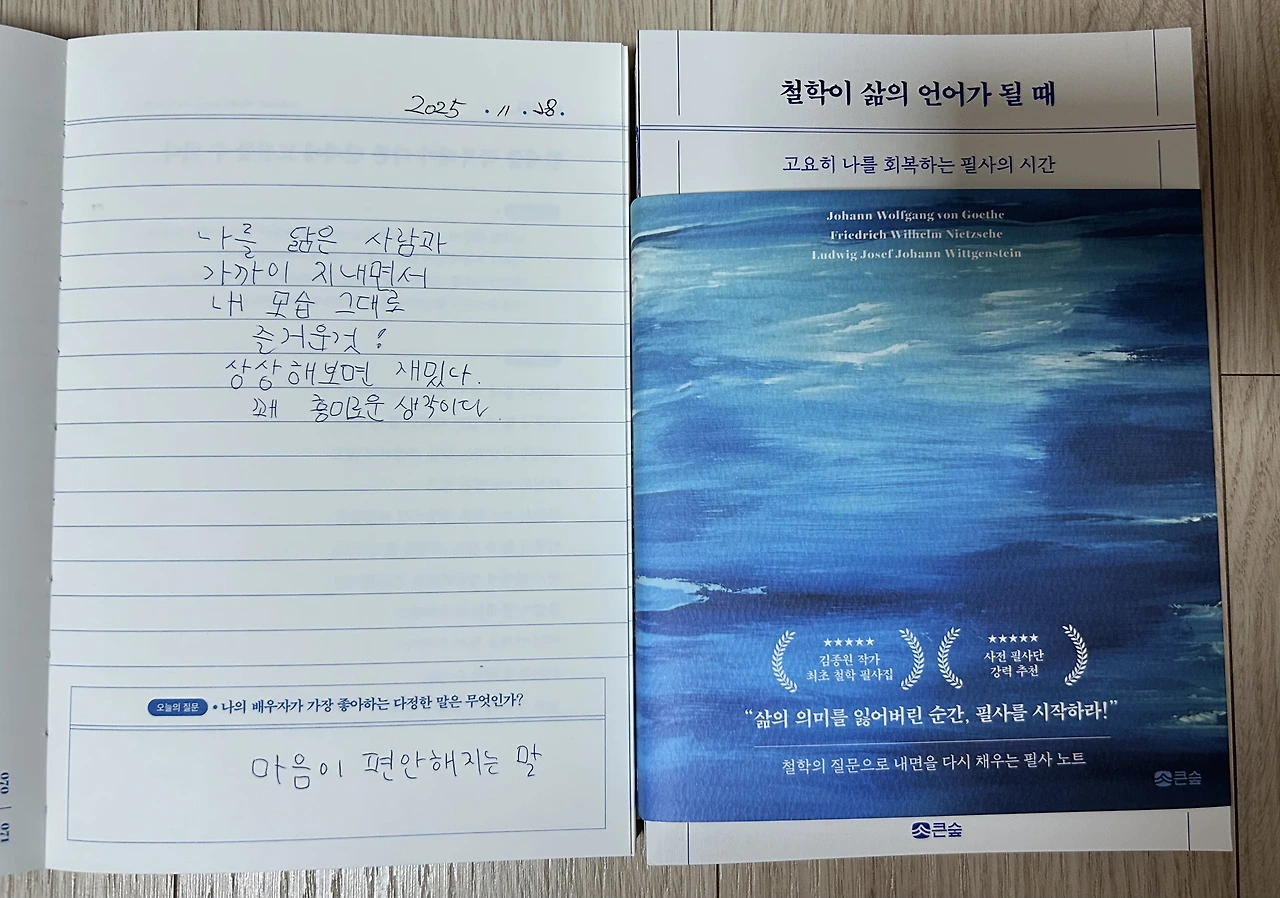 2025 . 11 . 28.
나를 닮은 사람과
가까이 지내면서
내 모습 그대로
즐거운것!
상상해보면 재밌다.
꽤 흥미로운 생각이다.
오늘의 질문 • 나의 배우자가 가장 좋아하는 다정한 말은 무엇인가?
마음이 편안해지는 말
070 | 071
철학이 삶의 언어가 될 때
고요히 나를 회복하는 필사의 시간
Johann Wolfgang von Goethe
Friedrich Wilhelm Nietzsche
Ludwig Josef Johann Wittgenstein
★★★★★
김종원 작가
최초 철학 필사집
★★★★★
사전 필사단
강력 추천
“삶의 의미를 잃어버린 순간, 필사를 시작하라!”
철학의 질문으로 내면을 다시 채우는 필사 노트
큰숲
큰숲